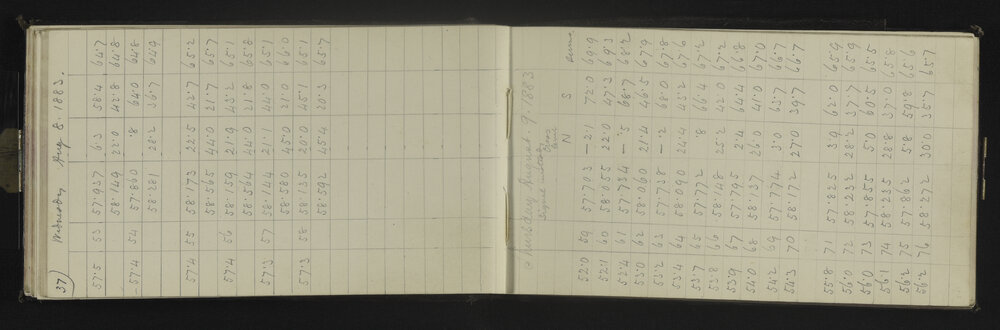 37) Wednesday Aug 8. 1883.
57.5 53 57.937 6.3 58.4 64.7
58.149 22.0 42.8 64.8
57.4 54 57.860 .8 64.0 64.8
58.281 28.2 36.7 64.9
57.4 55 58.173 22.5 42.7 65.2
58.565 44.0 21.7 65.7
57.4 56 58.159 21.9 43.2 65.1
58.564 44.0 21.8 65.8
57.3 57 58.144 21.1 44.0 65.1
58.580 45.0 21.0 66.0
57.3 58 58.135 20.0 45.1 65.1
58.592 45.4 20.3 65.7
Thursday August 9. 1883
N S
52.0 59 57.703 -2.1 72.0 69.9
52.1 60 58.055 22.0 47.3 69.3
52.4 61 57.734 -.5 68.7 68.2
53.0 62 58.060 21.4 46.5 67.9
53.2 63 57.738 -.2 68.0 67.8
53.4 64 58.090 24.4 43.2 67.6
53.7 65 57.772 .8 66.4 67.2
53.8 66 58.148 25.2 42.0 67.2
53.9 67 57.795 2.4 64.4 66.8
54.0 68 58.137 26.0 41.0 67.0
54.2 69 57.774 3.0 63.7 66.7
54.3 70 58.172 27.0 39.7 66.7
55.8 71 57.825 3.9 62.0 65.9
56.0 72 58.232 28.2 37.7 65.9
56.0 73 57.855 5.0 60.5 65.5
56.1 74 58.235 28.8 37.0 65.8
56.2 75 57.862 5.8 59.8 65.6
56.2 76 58.272 30.0 35.7 65.7